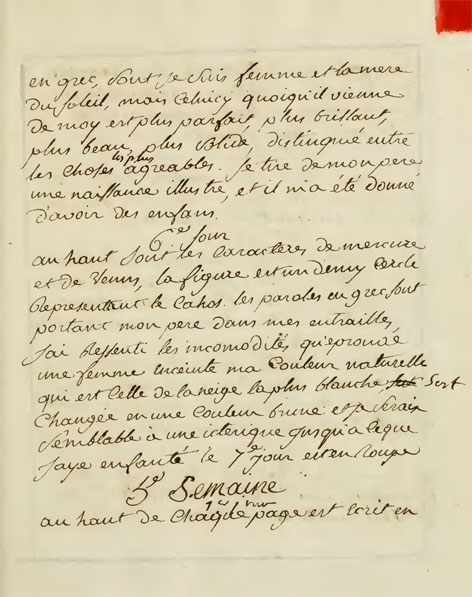 en grec, sont je suis femme et la mere
du soleil, mais celuicy quoiqu'il vienne
de moy est plus parfait, plus brillant,
plus beau, plus solide, distingué entre
les choses les plus agreables. je tire de mon pere
une naissance illustre, et il m'a été donné
d'avoir des enfans.
6e jour
au haut sont les caractères de mercure
et de venus, la figure est un demy cercle
representant le cahos. les paroles en grec sont
portant mon pere dans mes entrailles,
j'ai ressenti les incomodités qu'eprouve
une femme enceinte ma couleur naturelle
qui est celle de la neige la plus blanche s'est
changée en une couleur brune et je serais
semblable à une icterique jusqu'a ceque
j'aye enfanté le 7e jour est en rouge
5e Semaine
au haut de chaque page est ecrit en